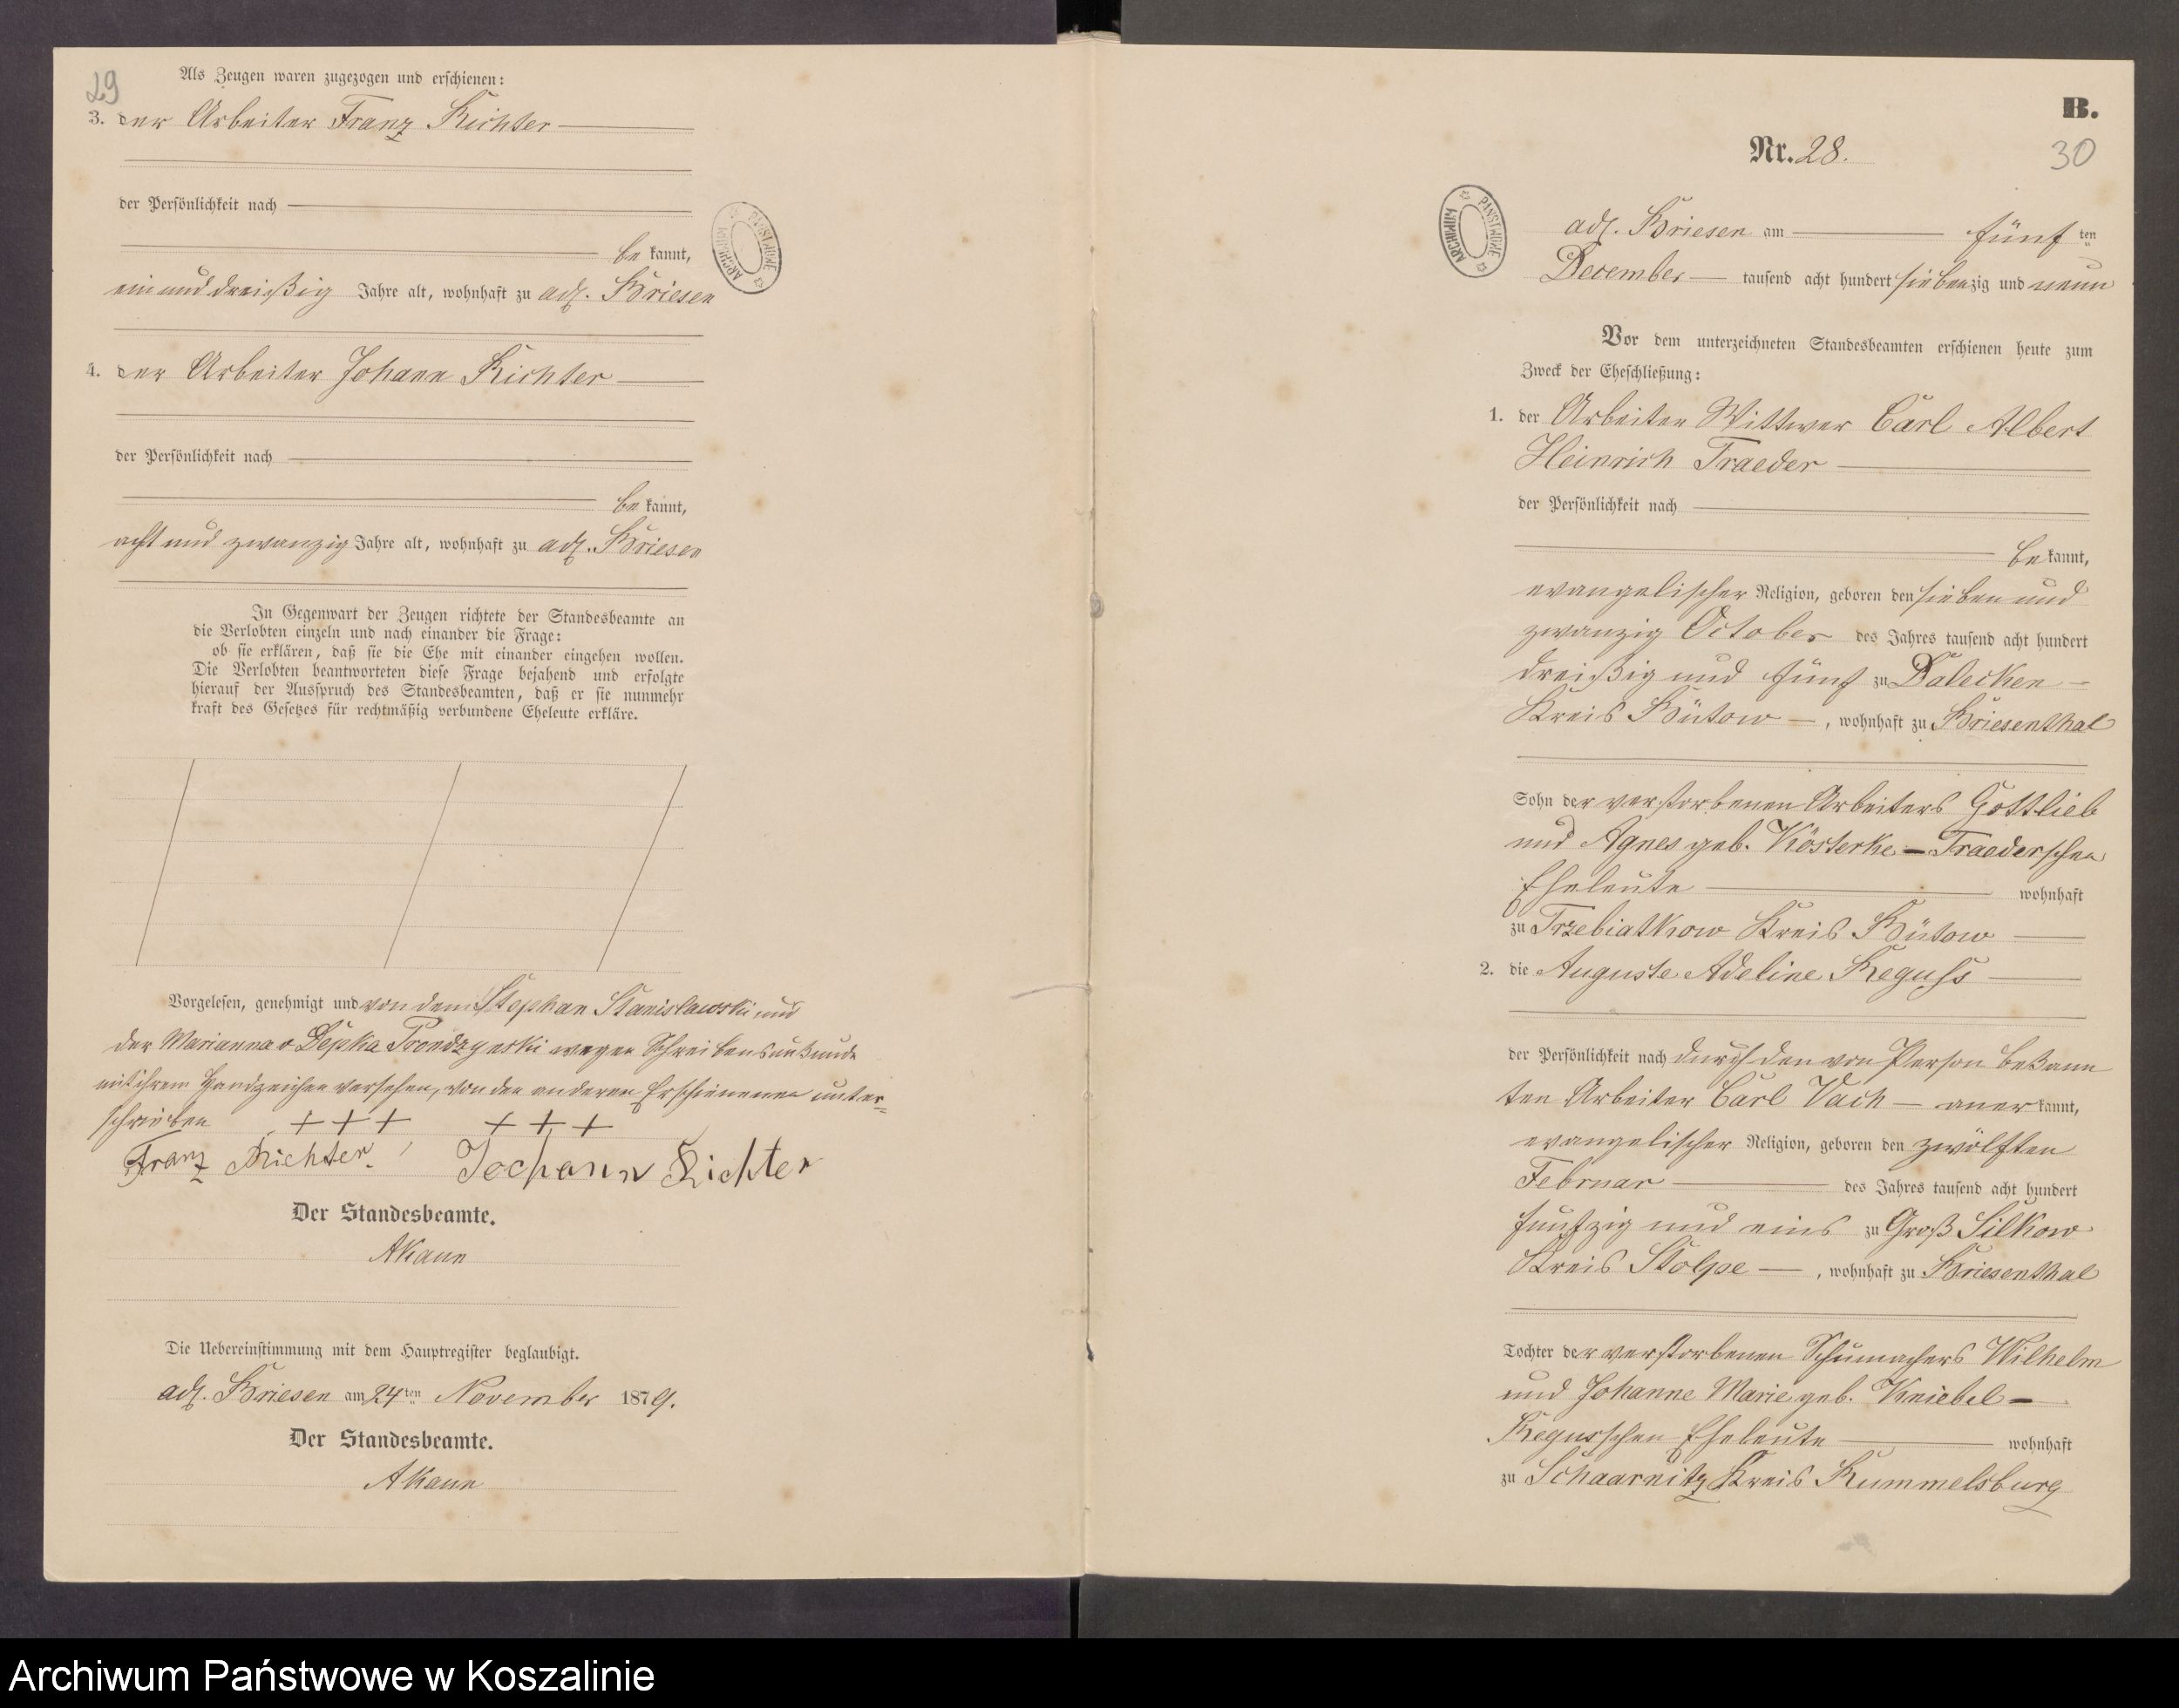 29
Als Zeugen waren zugezogen und erschienen:
3. der Arbeiter Franz Richter
der Persönlichkeit nach
be kannt,
ein und dreißig Jahre alt, wohnhaft zu adl. Briesen
4. der Arbeiter Johann Richter
der Persönlichkeit nach
be kannt,
acht und zwanzig Jahre alt, wohnhaft zu adl. Briesen
In Gegenwart der Zeugen richtete der Standesbeamte an
die Verlobten einzeln und nach einander die Frage:
ob sie erklären, daß sie die Ehe mit einander eingehen wollen.
Die Verlobten beantworteten diese Frage bejahend und erfolgte
hierauf der Ausspruch des Standesbeamten, daß er sie nunmehr
kraft des Gesetzes für rechtmäßig verbundene Eheleute erkläre.
Vorgelesen, genehmigt und von dem Stephan Stanislawski und
der Marianna v Depka Prondzynski wegen Schreibensunkunde
mit ihrem Handzeichen versehen, von den anderen Erschienenen unter=
schrieben +++ +++
Franz Richter. Johann Richter
Der Standesbeamte.
AKaun
Die Uebereinstimmung mit dem Hauptregister beglaubigt.
adl. Briesen am 24ten November 1879.
Der Standesbeamte.
AKaun
B.
Nr. 28.
30
ARCHIWUM PAŃSTWOWE
adl. Briesen am fünf ten
December tausend acht hundert siebenzig und neun
Vor dem unterzeichneten Standesbeamten erschienen heute zum
Zweck der Eheschließung:
1. der Arbeiter Wittwer Carl Albert
Heinrich Traeder
der Persönlichkeit nach
be kannt,
evangelischer Religion, geboren den sieben und
zwanzig October des Jahres tausend acht hundert
dreißig und fünf zu Dalecken
Kreis Bütow, wohnhaft zu Briesenthal
Sohn der verstorbenen Arbeiters Gottlieb
und Agnes geb. Kösterke - Traederschen
Eheleute wohnhaft
zu Trzebiatkow Kreis Bütow
2. die Auguste Adeline Reguss
der Persönlichkeit nach durch den von Person bekann
ten Arbeiter Carl Vach - aner kannt,
evangelischer Religion, geboren den zwölften
Februar des Jahres tausend acht hundert
funfzig und eins zu Groß Silkow
Kreis Stolpe, wohnhaft zu Briesenthal
Tochter der verstorbenen Schumachers Wilhelm
und Johanne Marie geb. Kniebel -
Regusschen Eheleute wohnhaft
zu Schaarnitz Kreis Rummelsburg
Archiwum Państwowe w Koszalinie